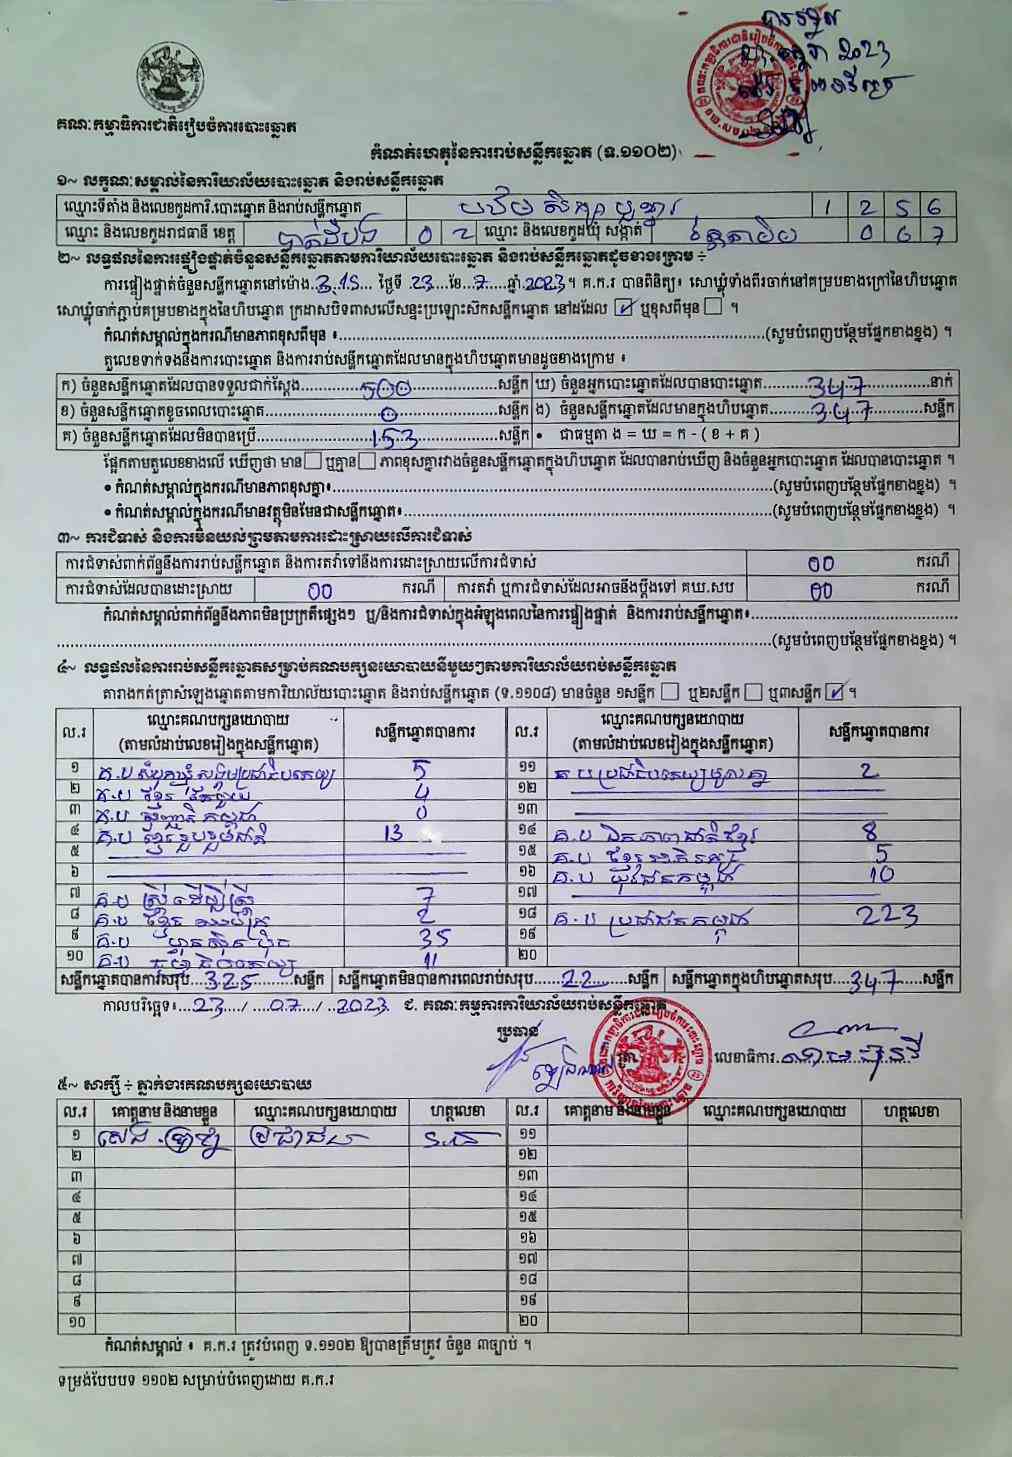 គណៈកម្មាធិការជាតិរៀបចំការបោះឆ្នោត
កំណត់ហេតុនៃការរាប់សន្លឹកឆ្នោត (ទ.១១០២)
១~ លក្ខណៈសម្គាល់នៃការិយាល័យបោះឆ្នោត និងរាប់សន្លឹកឆ្នោត
ឈ្មោះទីតាំង និងលេខកូដការិ.បោះឆ្នោត និងរាប់សន្លឹកឆ្នោត 1 2 5 6
ឈ្មោះ និងលេខកូដរាជធានី ខេត្ត បាត់ដំបង 0 2 ឈ្មោះ និងលេខកូដឃុំ សង្កាត់ វត្តតាមិម 0 6 7
២~ លទ្ធផលនៃការផ្ទៀងផ្ទាត់ចំនួនសន្លឹកឆ្នោតតាមការិយាល័យបោះឆ្នោត និងរាប់សន្លឹកឆ្នោតដូចខាងក្រោម ÷
ការផ្ទៀងផ្ទាត់ចំនួនសន្លឹកឆ្នោតនៅម៉ោង.3.15... ថ្ងៃទី .23...ខែ..7....ឆ្នាំ.2023។ គ.ក.រ បានពិនិត្យ៖ សោឃ្លុំទាំងពីរចាក់នៅគម្របខាងក្រៅនៃហិបឆ្នោត
សោឃ្លុំចាក់ភ្ជាប់គម្របខាងក្នុងនៃហិបឆ្នោត ក្រដាសបិទពាសលើសន្ទះប្រឡោះស៊កសន្លឹកឆ្នោត នៅដដែល ☑ ឬខុសពីមុន ☐ ។
កំណត់សម្គាល់ក្នុងករណីមានភាពខុសពីមុន ៖......(សូមបំពេញបន្ថែមផ្នែកខាងខ្នង) ។
តួលេខទាក់ទងនឹងការបោះឆ្នោត និងការរាប់សន្លឹកឆ្នោតដែលមានក្នុងហិបឆ្នោតមានដូចខាងក្រោម ៖
ក) ចំនួនសន្លឹកឆ្នោតដែលបានទទួលជាក់ស្តែង......500......សន្លឹក ឃ) ចំនួនអ្នកបោះឆ្នោតដែលបានបោះឆ្នោត......347......នាក់
ខ) ចំនួនសន្លឹកឆ្នោតខូចពេលបោះឆ្នោត......0......សន្លឹក ង) ចំនួនសន្លឹកឆ្នោតដែលមានក្នុងហិបឆ្នោត......347......សន្លឹក
គ) ចំនួនសន្លឹកឆ្នោតដែលមិនបានប្រើ......153......សន្លឹក • ជាធម្មតា ង = ឃ = ក - ( ខ + គ )
ផ្អែកតាមតួលេខខាងលើ ឃើញថា មាន☐ ឬគ្មាន☐ ភាពខុសគ្នារវាងចំនួនសន្លឹកឆ្នោតក្នុងហិបឆ្នោត ដែលបានរាប់ឃើញ និងចំនួនអ្នកបោះឆ្នោត ដែលបានបោះឆ្នោត ។
• កំណត់សម្គាល់ក្នុងករណីមានភាពខុសគ្នា៖......(សូមបំពេញបន្ថែមផ្នែកខាងខ្នង) ។
• កំណត់សម្គាល់ក្នុងករណីមានវត្ថុមិនមែនជាសន្លឹកឆ្នោត៖......(សូមបំពេញបន្ថែមផ្នែកខាងខ្នង) ។
៣~ ការជំទាស់ និងការមិនយល់ព្រមតាមការដោះស្រាយលើការជំទាស់
ការជំទាស់ពាក់ព័ន្ធនឹងការរាប់សន្លឹកឆ្នោត និងការតវ៉ាទៅនឹងការដោះស្រាយលើការជំទាស់ 00 ករណី
ការជំទាស់ដែលបានដោះស្រាយ 00 ករណី ការតវ៉ា ឬការជំទាស់ដែលអាចនឹងប្តឹងទៅ គឃ.សប 00 ករណី
កំណត់សម្គាល់ពាក់ព័ន្ធនឹងភាពមិនប្រក្រតីផ្សេងៗ ឬ/និងការជំទាស់ក្នុងអំឡុងពេលនៃការផ្ទៀងផ្ទាត់ និងការរាប់សន្លឹកឆ្នោត៖......
......(សូមបំពេញបន្ថែមផ្នែកខាងខ្នង) ។
៤~ លទ្ធផលនៃការរាប់សន្លឹកឆ្នោតសម្រាប់គណបក្សនយោបាយនីមួយៗតាមការិយាល័យរាប់សន្លឹកឆ្នោត
តារាងកត់ត្រាសំឡេងឆ្នោតតាមការិយាល័យបោះឆ្នោត និងរាប់សន្លឹកឆ្នោត (ទ.១១០៨) មានចំនួន ១សន្លឹក ☐ ឬ២សន្លឹក ☐ ឬ៣សន្លឹក ☑ ។
ល.រ ឈ្មោះគណបក្សនយោបាយ (តាមលំដាប់លេខរៀងក្នុងសន្លឹកឆ្នោត) សន្លឹកឆ្នោតបានការ ល.រ ឈ្មោះគណបក្សនយោបាយ (តាមលំដាប់លេខរៀងក្នុងសន្លឹកឆ្នោត) សន្លឹកឆ្នោតបានការ
១ គ.ប សំបុកឃ្មុំសង្គមប្រជាធិបតេយ្យ 5 ១១ គ.ប ប្រជាធិបតេយ្យមូលដ្ឋាន 2
២ គ.ប ខ្មែរ 4 ១២
៣ គ.ប សញ្ជាតិកម្ពុជា 0 ១៣
៤ គ.ប ខ្មែររួបរួមជាតិ 13 ១៤ គ.ប ឯកភាពជាតិខ្មែរ 8
៥ ១៥ គ.ប 5
៦ ១៦ គ.ប យុវជនកម្ពុជា 10
៧ គ.ប ស្ត្រីដើម្បីស្ត្រី 7 ១៧
៨ គ.ប ខ្មែរ 2 ១៨ គ.ប ប្រជាជនកម្ពុជា 223
៩ គ.ប ហ្វ៊ុនស៊ិនប៉ិច 35 ១៩
១០ គ.ប 11 ២០
សន្លឹកឆ្នោតបានការសរុប....325......សន្លឹក សន្លឹកឆ្នោតមិនបានការពេលរាប់សរុប......22......សន្លឹក សន្លឹកឆ្នោតក្នុងហិបឆ្នោតសរុប....347....សន្លឹក
កាលបរិច្ឆេទ៖...23.../...07.../..2023 ជ. គណៈកម្មការការិយាល័យរាប់សន្លឹកឆ្នោត
ប្រធាន
លេខាធិការ
៥~ សាក្សី ÷ ភ្នាក់ងារគណបក្សនយោបាយ
ល.រ គោត្តនាម និងនាមខ្លួន ឈ្មោះគណបក្សនយោបាយ ហត្ថលេខា ល.រ គោត្តនាម និងនាមខ្លួន ឈ្មោះគណបក្សនយោបាយ ហត្ថលេខា
១ ប្រជាជន ១១
២ ១២
៣ ១៣
៤ ១៤
៥ ១៥
៦ ១៦
៧ ១៧
៨ ១៨
៩ ១៩
១០ ២០
កំណត់សម្គាល់ ៖ គ.ក.រ ត្រូវបំពេញ ទ.១១០២ ឱ្យបានត្រឹមត្រូវ ចំនួន ៣ច្បាប់ ។
ទម្រង់បែបបទ ១១០២ សម្រាប់បំពេញដោយ គ.ក.រ